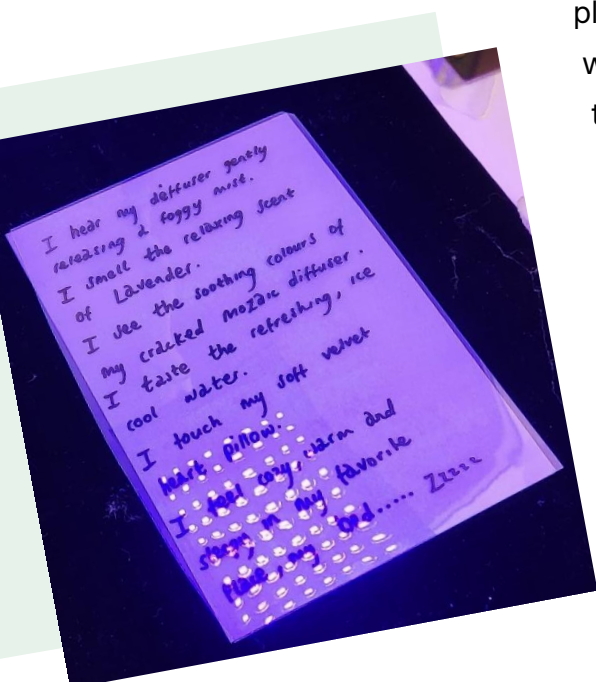 I hear my deffuser gently
releasing a foggy mist.
I smell the relaxing scent
of Lavender.
I see the soothing colours of
my cracked mozaic diffuser.
I taste the refreshing, ice
cool water.
I touch my soft velvet
heart pillow.
I feel cozy, warm and
sleepy in my favorite
place, my bed..... Zzzzz
pl
w
t